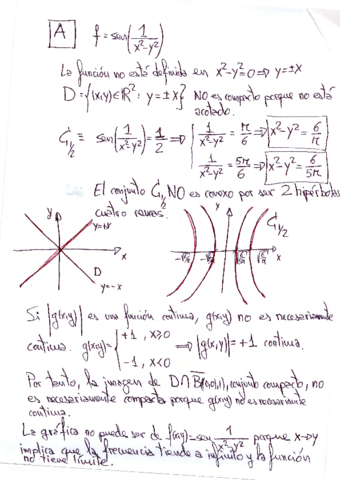 A f = sen(1/(x²-y²))
La función no está definida en x²-y²=0 ⇒ y=±x
D = {(x,y)∈ℝ² : y=±x} NO es compacto porque no está
acotado.
C_{1/2} ≡ sen(1/(x²-y²)) = 1/2 ⇒ { 1/(x²-y²) = π/6 ⇒ x²-y² = 6/π
1/(x²-y²) = 5π/6 ⇒ x²-y² = 6/5π
El conjunto C_{1/2} NO es conexo por ser 2 hipérbolas
cuatro ramas.
y y=+x
x
D
y=-x
y C_{1/2}
x
Si |g(x,y)| es una función continua, g(x,y) no es necesariamente
continua. g(x,y) = { +1, x≥0
-1, x<0 ⇒ |g(x,y)| = +1 continua.
Por tanto, la imagen de D∩B̄((0,0),1), conjunto compacto, no
es necesariamente compacta porque g(x,y) no es necesariamente
continua.
La gráfica no puede ser de f(x,y) = sen 1/(x²-y²) porque x→y
implica que la frecuencia tiende a infinito y la función
no tiene límite.